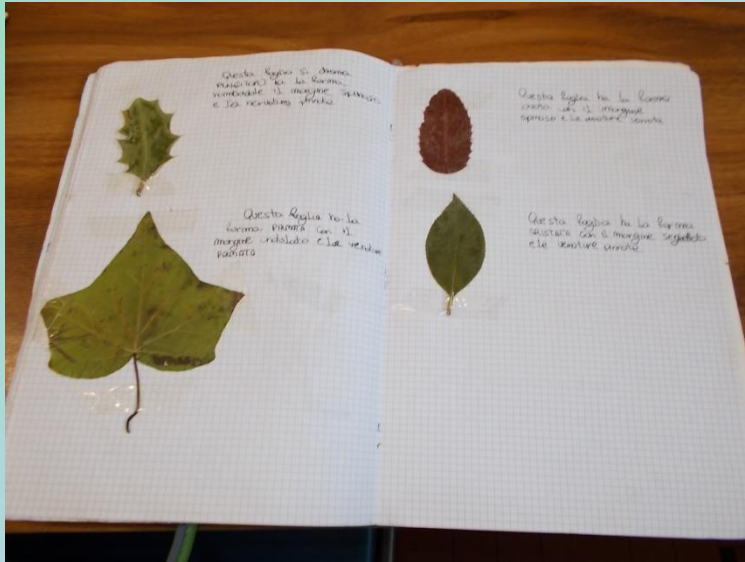 Questa foglia si chiama
ha la forma
romboidale il margine spinoso
e la nervatura pinnata
Questa foglia ha la
forma PALMATA con il
margine ondulato e le venature
PALMATA
Questa foglia ha la forma
con il margine
spinoso e le venature
Questa foglia ha la forma
con il margine seghettato
e le venature pinnate